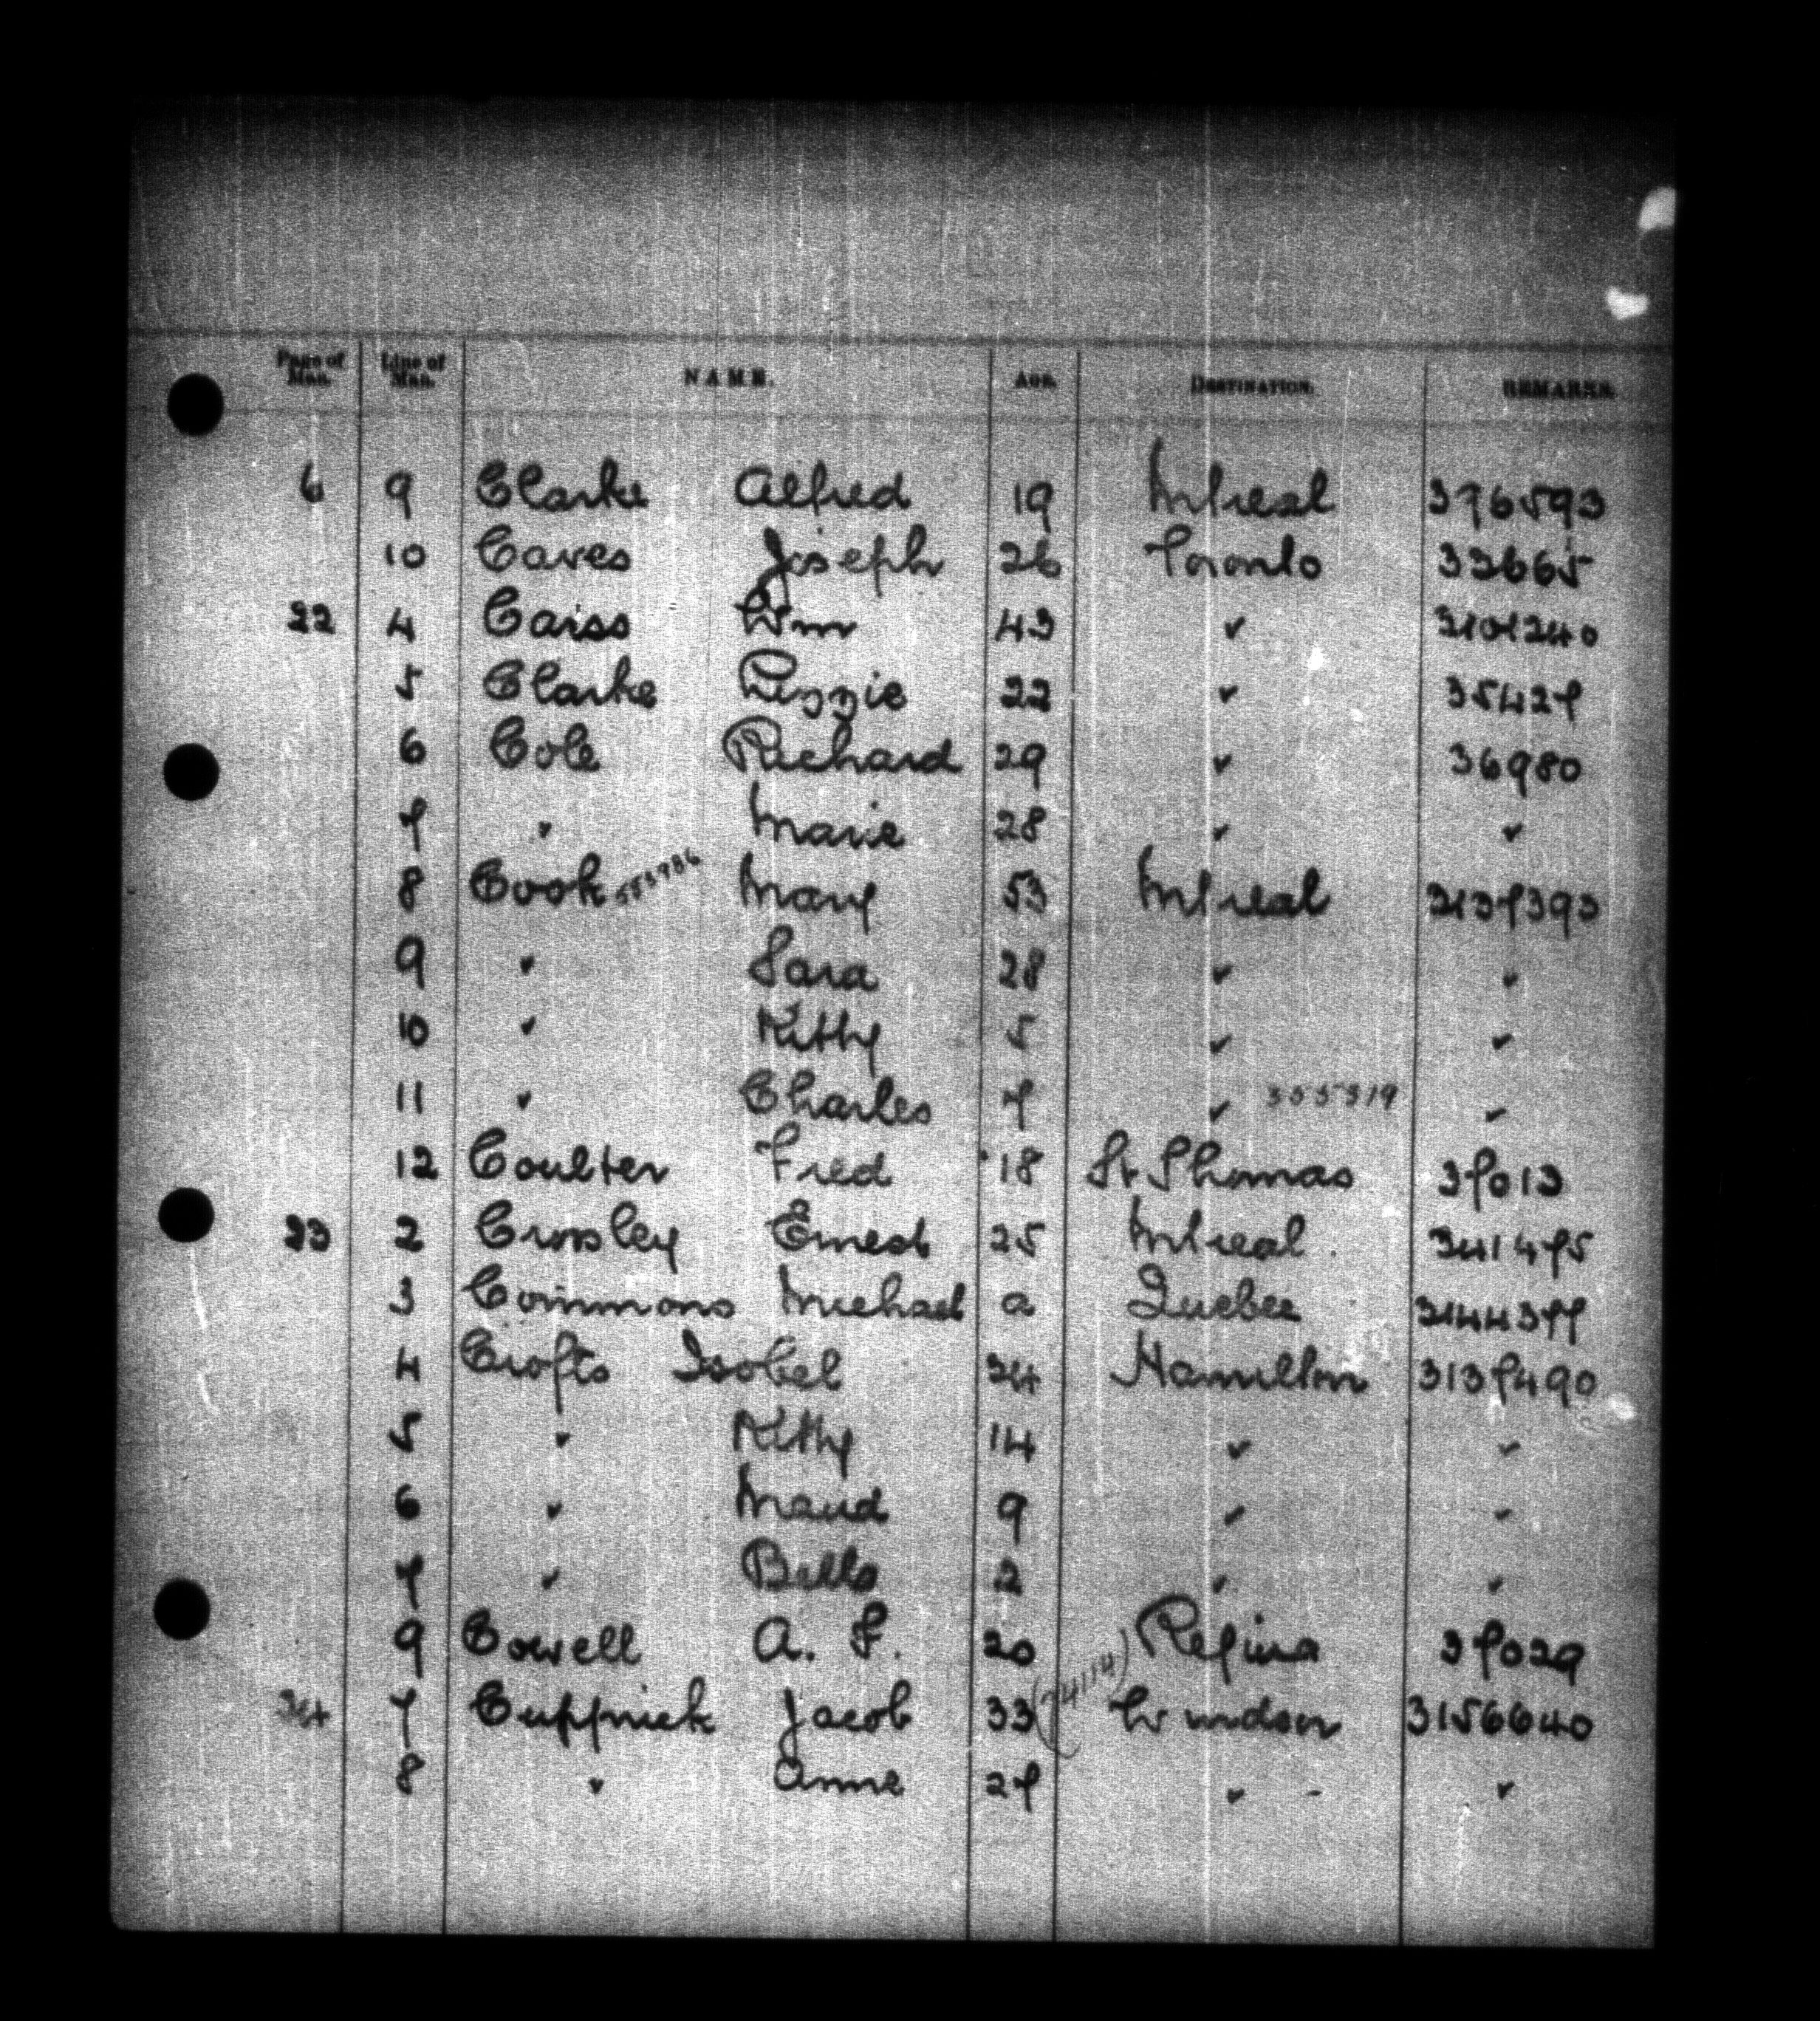 Page of Man. Line of Man. NAME. AGE. DESTINATION. REMARKS.
6 9 Clarke Alfred 19 Mtreal 376593
10 Caves Joseph 26 Toronto 33665
22 4 Caiss Wm 43 " 3101240
5 Clarke Lizzie 22 " 35427
6 Cole Richard 29 " 36980
7 " Marie 28 " "
8 Cook 553786 Mary 53 Mtreal 3137393
9 " Sara 28 " "
10 " Kitty 5 " "
11 " Charles 7 " 355319 "
12 Coulter Fred 18 St Thomas 37013
23 2 Crosley Ernest 25 Mtreal 341475
3 Commons Michael a Quebec 3144377
4 Crofts Isobel 34 Hamilton 3137490
5 " Kitty 14 " "
6 " Maud 9 " "
7 " Bella 2 " "
9 Cowell A. F. 20 Regina 37029
34 7 Cuppnick Jacob 33 (74114) Windsor 3156640
8 " Anne 27 " - "